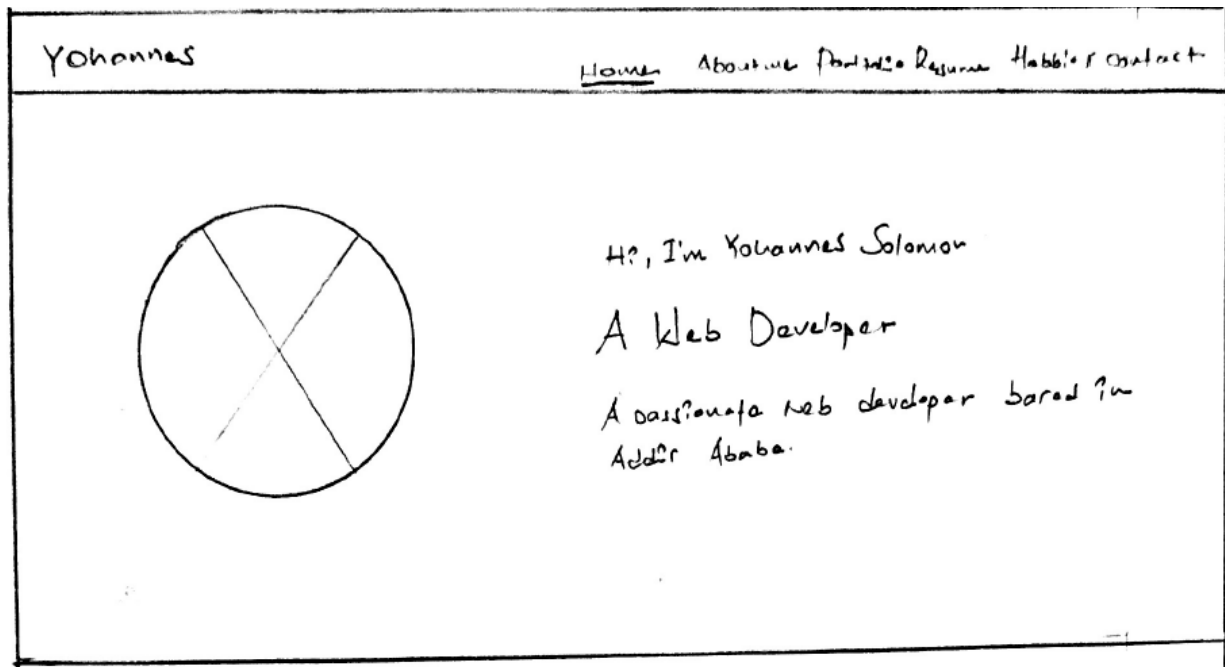 Yohannes
Home About me Portfolio Resume Hobbies contact
Hi, I'm Yohannes Solomon
A Web Developer
A passionate web developer based in
Addis Ababa.